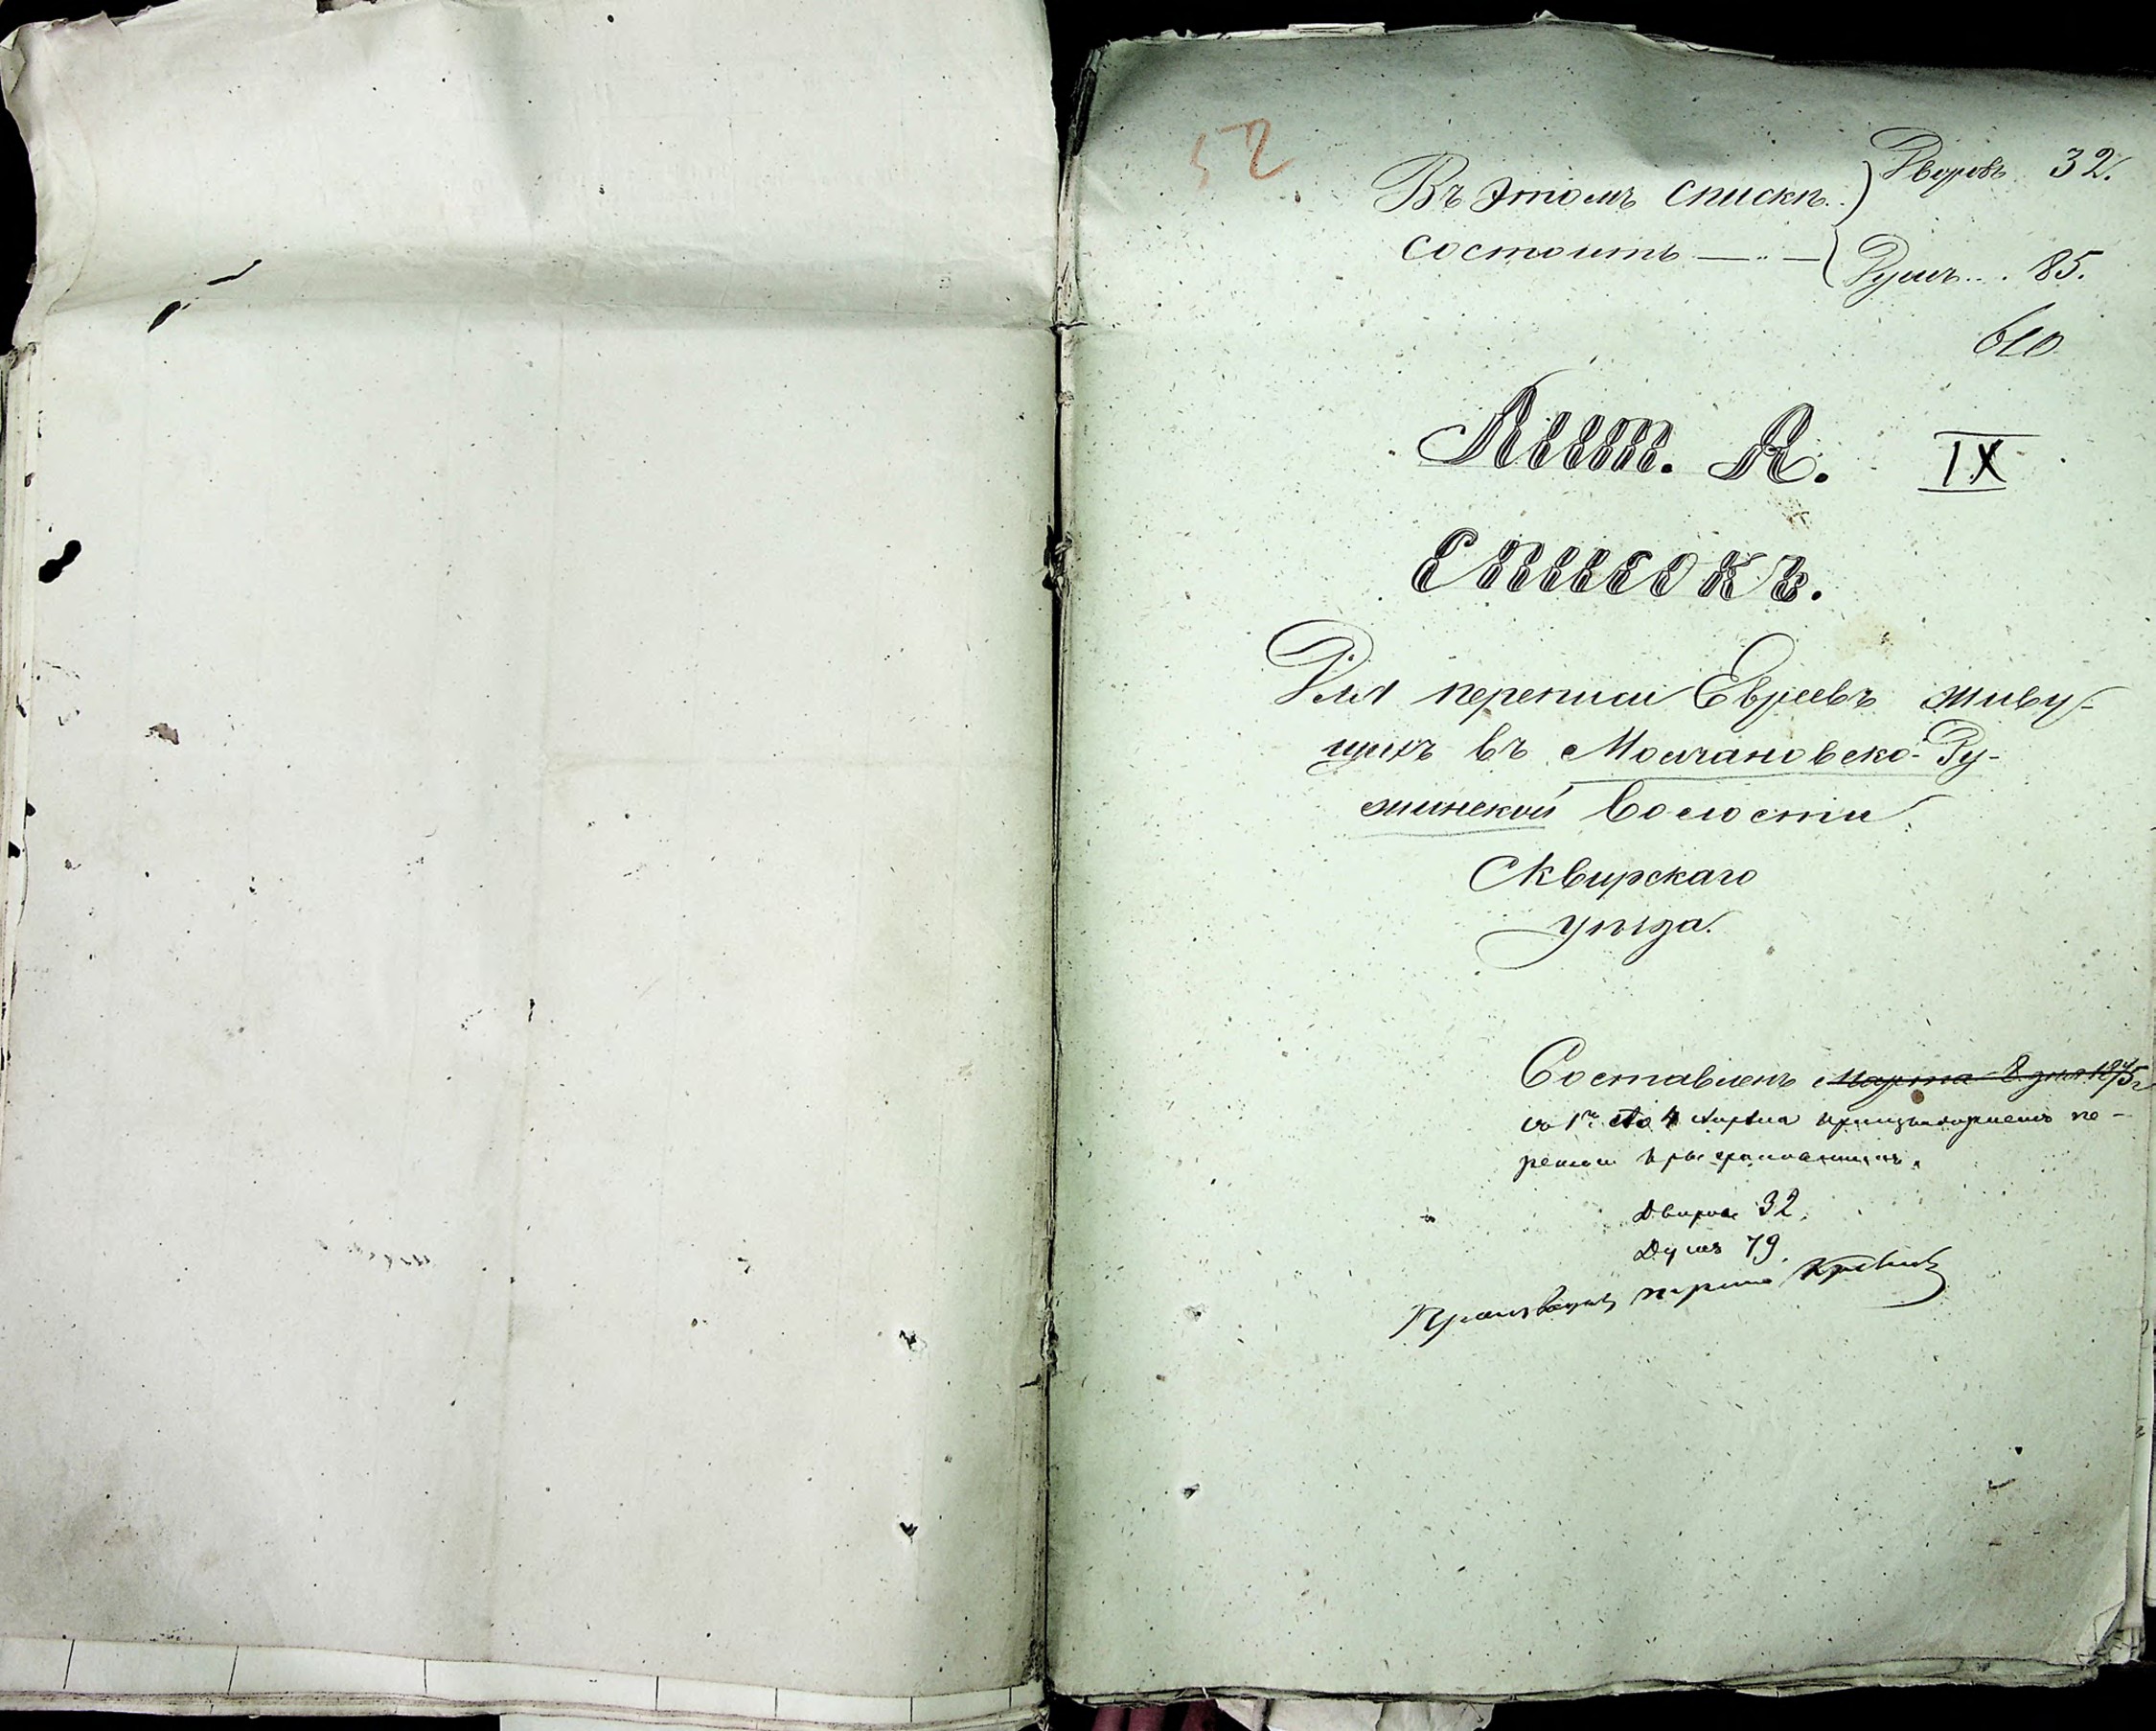 52
Въ этомъ спискѣ } Дворовъ 32.
состоитъ — „ — { Душъ... 85.
Лит. А. IX
Списокъ.
Для переписи Евреевъ живу-
щихъ въ Молчановско-Ру-
жинской волости
Сквирскаго
уѣзда.
Составленъ Марта 8 дня 1875 г
съ 1го по 4 Апрѣля произведенъ пе-
реписи
Дворовъ 32.
Душъ 79.